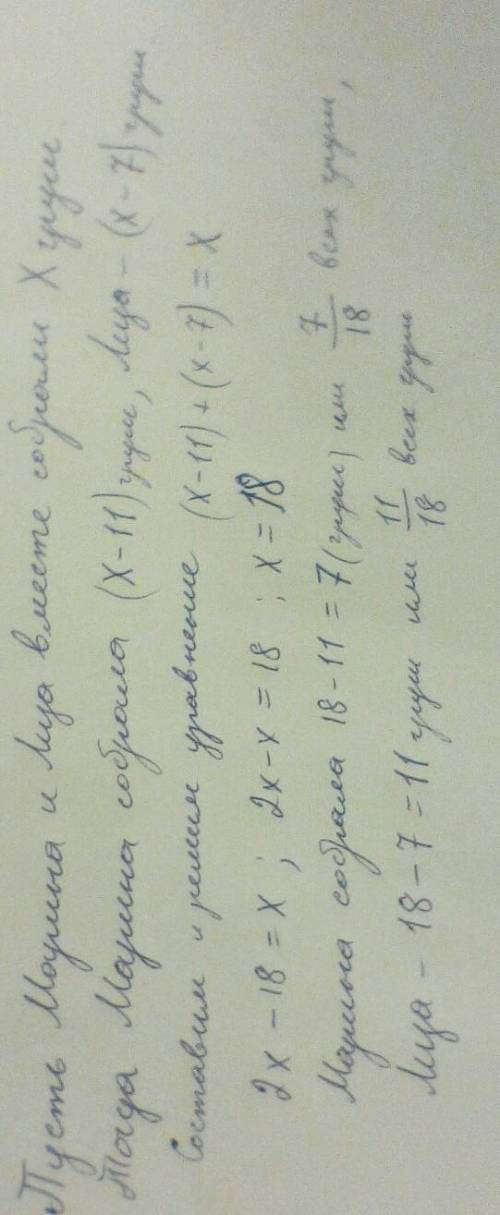 Пусть Марина и Лида вместе собрали X груш.
Тогда Марина собрала (X-11) груш, Лида - (X-7) груш
Составим и решим уравнение (X-11)+(X-7)=X
2X-18=X; 2X-X=18; X=18
Марина собрала 18-11=7 (груш) или 7/18 всех груш,
Лида - 18-7=11 груш или 11/18 всех груш